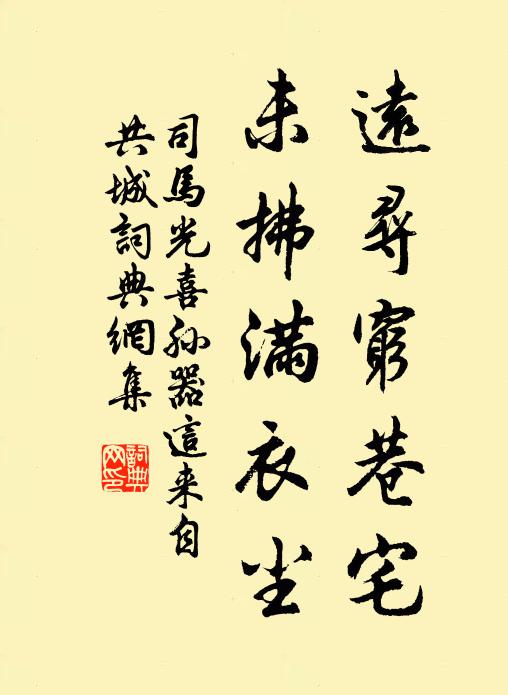 遠尋窮巷宅
未拂滿衣尘
司馬光喜孙器這来自
共城詞典網集
詞典网印